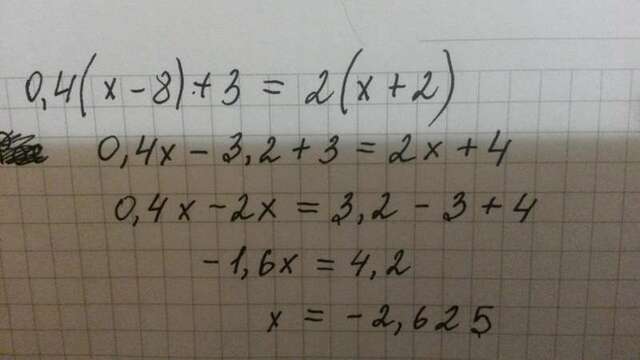 0,4(x-8)+3 = 2(x+2)
0,4x-3,2+3=2x+4
0,4x-2x=3,2-3+4
-1,6x=4,2
x=-2,625